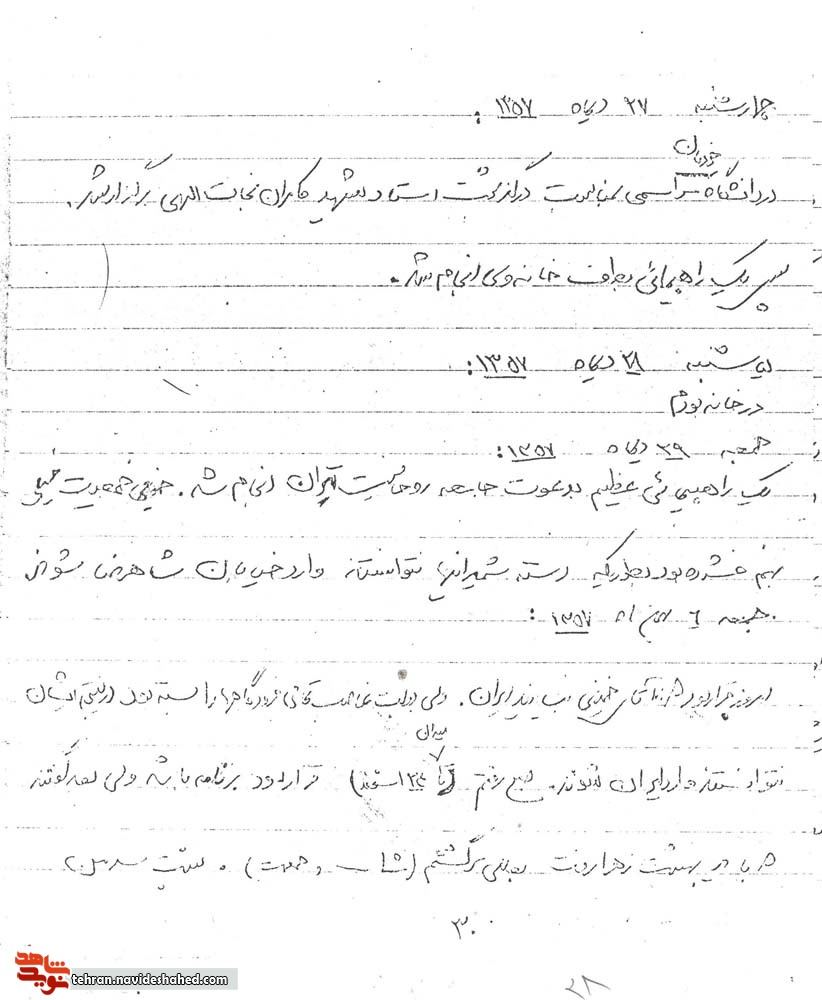 چهارشنبه ۲۷ دیماه ۱۳۵۷ :
خودمان
در دانشگاه مراسمی بمناسبت درگذشت استاد شهید کامران نجات الهی برگزار شد.
سپس یک راهپیمائی بطرف خانه وی انجام شد.
۲۸ دیماه ۱۳۵۷ :
در خانه بودم
جمعه ۲۹ دیماه ۱۳۵۷ :
یک راهپیمائی عظیم بدعوت جامعه روحانیت تهران انجام شد. جمعیت خیلی
بهم فشرده بود بطوریکه دسته شمیرانیها نتوانستند وارد خیابان شاهرضا شوند
جمعه ۶ بهمن ماه ۱۳۵۷ :
امروز قرار بود آقای خمینی بیایند ایران. ولی دولت غاصب فرودگاهها را بسته بود در نتیجه ایشان
میدان
نتوانستند وارد ایران شوند. صبح رفتم (تا ۲۴ اسفند) قرار بود برنامه باشد ولی بعد گفتند
که باید بهشت زهرا رفت برگشتم
۳۰
۲۸
شاهد
نوید
tehran.navideshahed.com